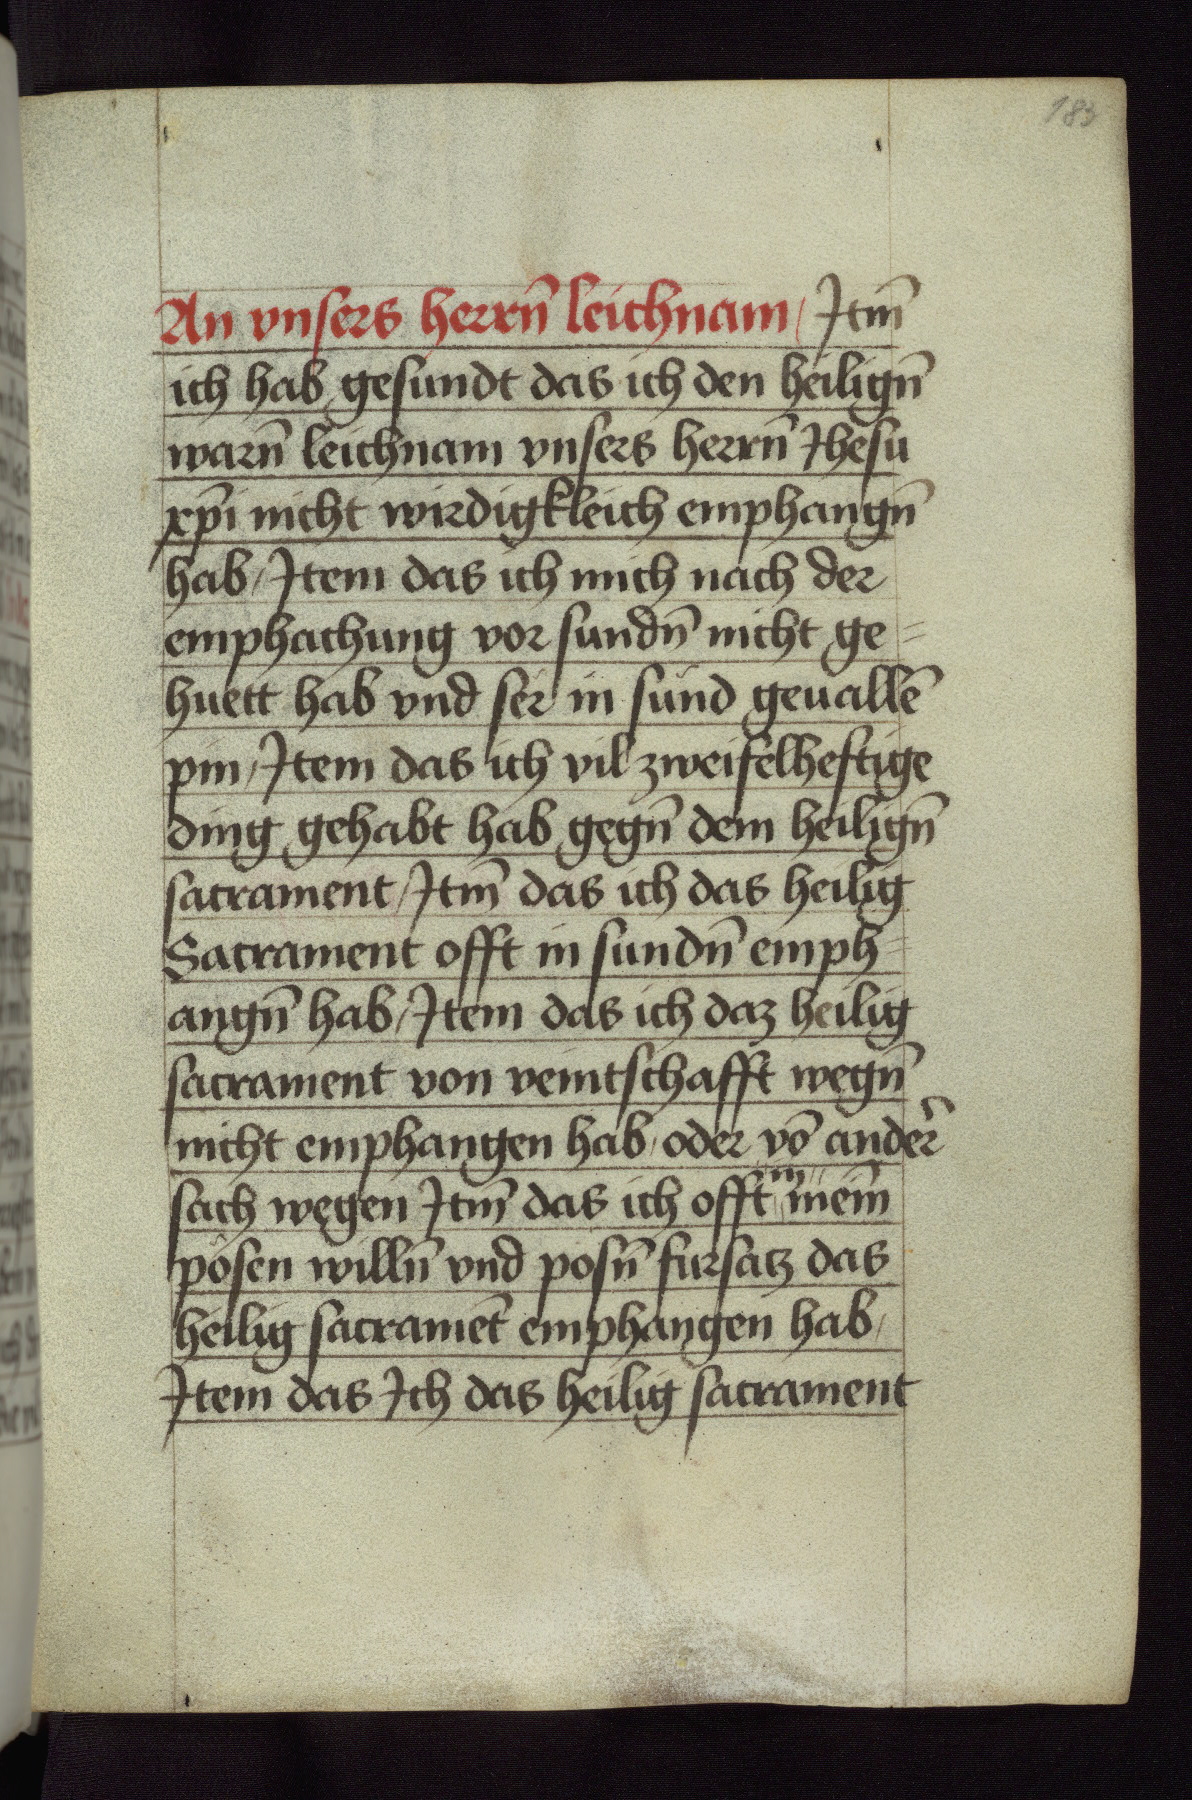 183
An vnsers herrn̄ leichnam / Itm̄
ich hab gesundt das ich den heilign̄
warn̄ leichnam vnsers herrn̄ Jhesu
xp̄i nicht wirdigkleich emphangn̄
hab / Item das ich mich nach der
emphachung vor sundn̄ nicht ge=
huett hab vnd ser in sund geuallē
pin / Item das ich vil zweifelheftige
ding gehabt hab gegn̄ dem heilign̄
sacrament / Itm̄ das ich das heilig
Sacrament offt in sundn̄ emph=
angn̄ hab / Item das ich daz heilig
sacrament von veintschafft wegn̄
nicht emphangen hab / oder vōander̄
sach wegen Itm̄ das ich offt in meim̄
pösen willn̄ vnd posn̄ fursatz das
heilig sacramēt emphangen hab /
Item das Ich das heilig sacrament